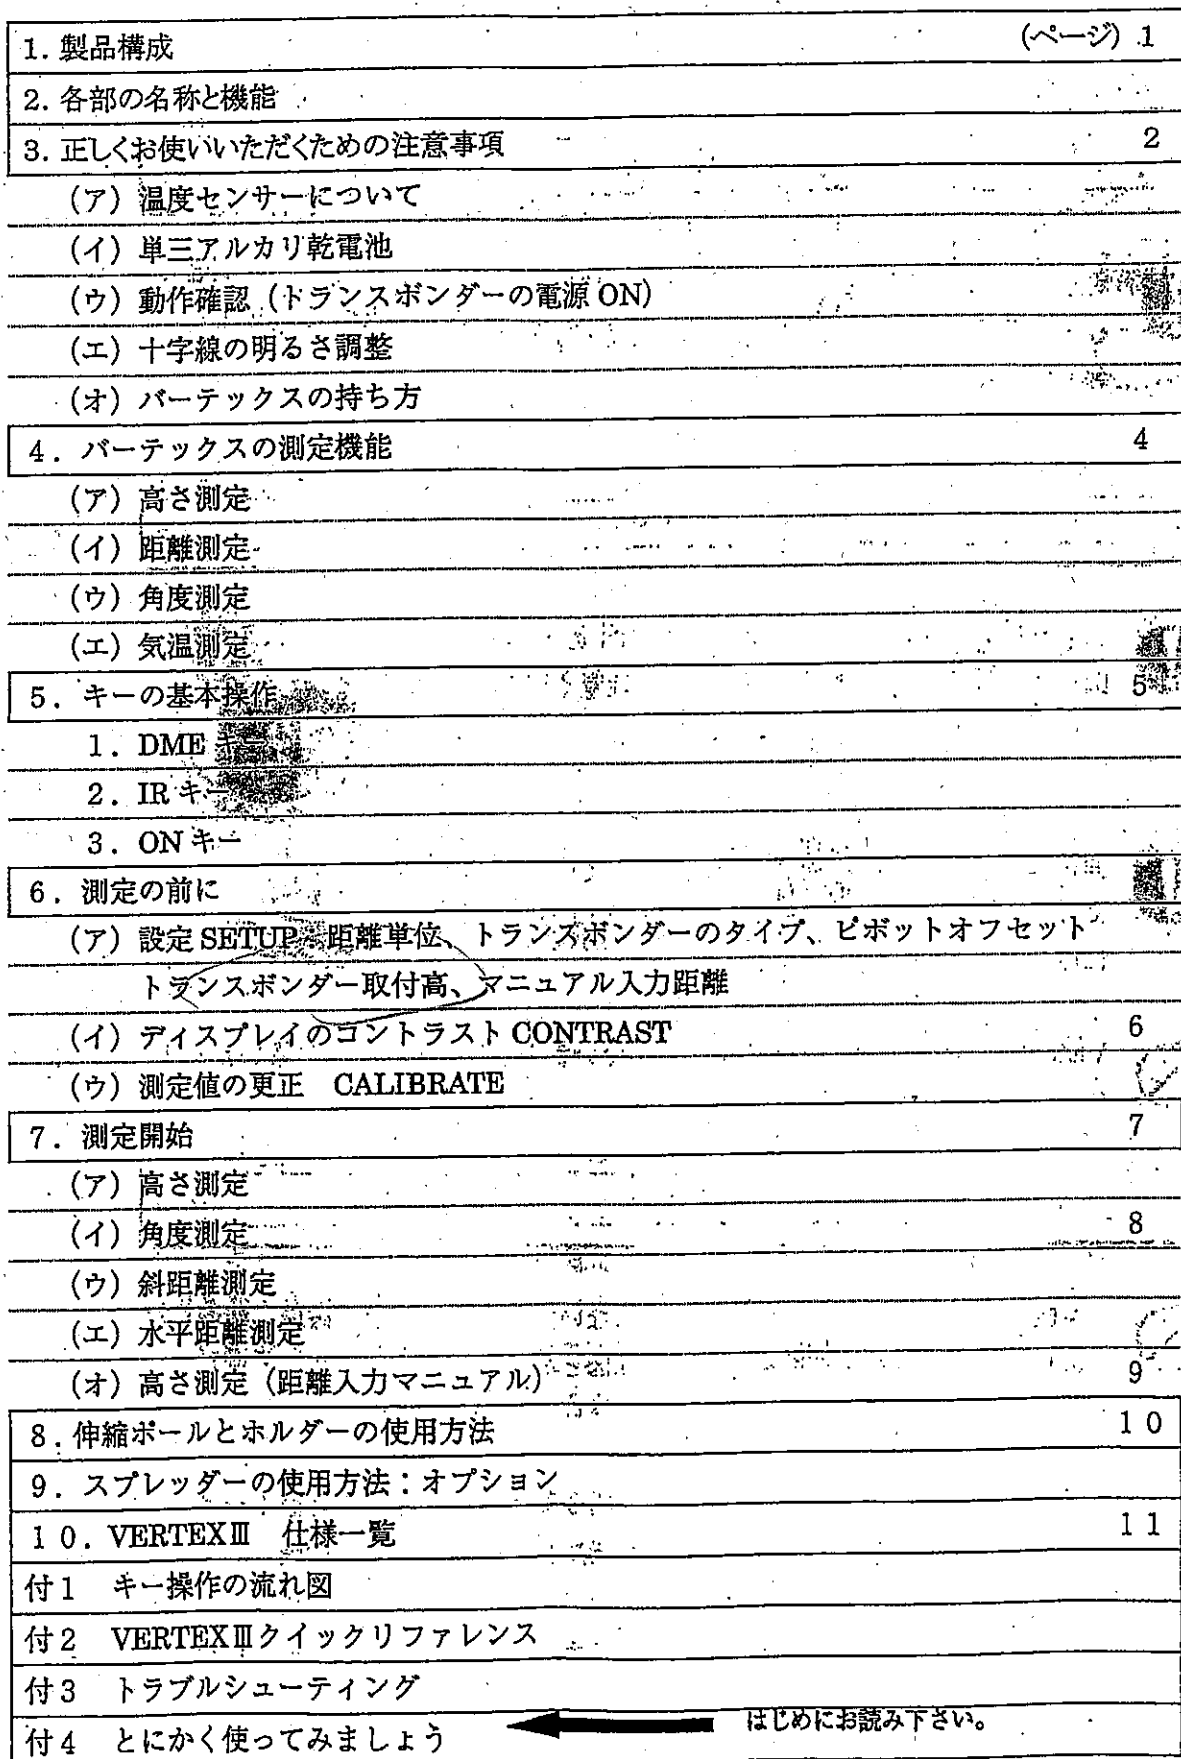 1. 製品構成 (ページ) 1
2. 各部の名称と機能
3. 正しくお使いいただくための注意事項 2
(ア) 温度センサーについて
(イ) 単三アルカリ乾電池
(ウ) 動作確認 (トランスボンダーの電源 ON)
(エ) 十字線の明るさ調整
(オ) バーテックスの持ち方
4. バーテックスの測定機能 4
(ア) 高さ測定
(イ) 距離測定
(ウ) 角度測定
(エ) 気温測定
5. キーの基本操作 5
1. DME キー
2. IR キー
3. ON キー
6. 測定の前に
(ア) 設定 SETUP 距離単位、トランスボンダーのタイプ、ピボットオフセット
トランスボンダー取付高、マニュアル入力距離
(イ) ディスプレイのコントラスト CONTRAST 6
(ウ) 測定値の更正 CALIBRATE
7. 測定開始 7
(ア) 高さ測定
(イ) 角度測定 8
(ウ) 斜距離測定
(エ) 水平距離測定
(オ) 高さ測定 (距離入力マニュアル) 9
8. 伸縮ポールとホルダーの使用方法 10
9. スプレッダーの使用方法：オプション
10. VERTEXⅢ 仕様一覧 11
付1 キー操作の流れ図
付2 VERTEXⅢクイックリファレンス
付3 トラブルシューティング
付4 とにかく使ってみましょう はじめにお読み下さい。